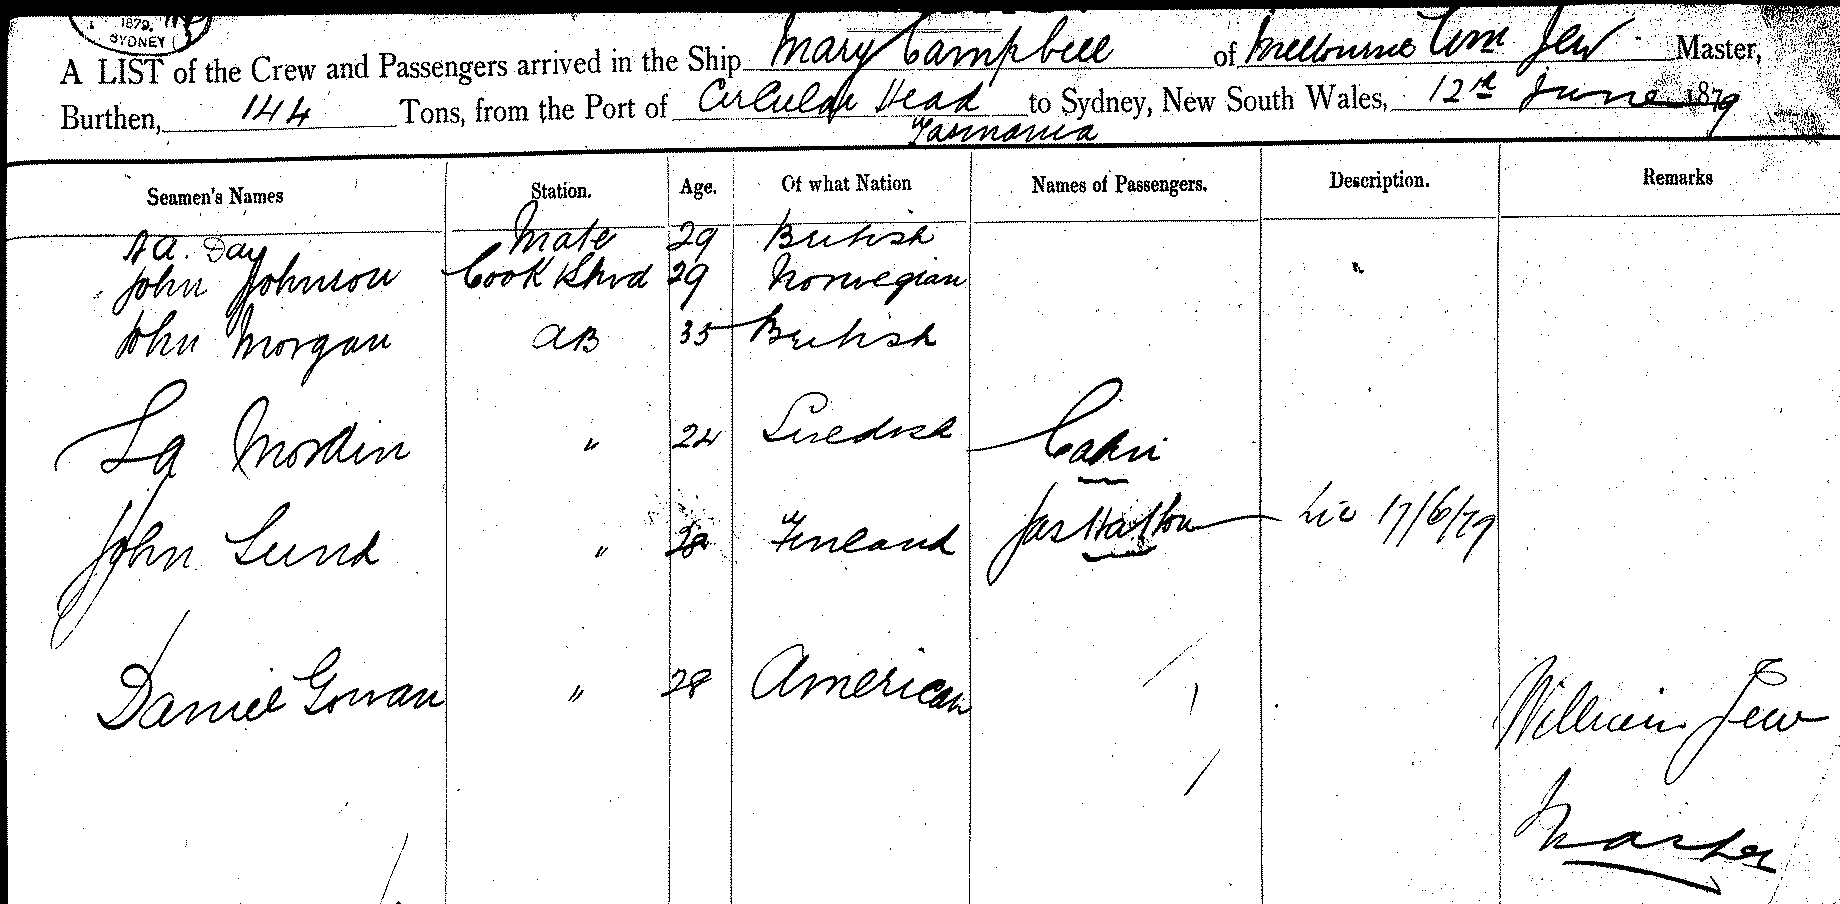 1879.
SYDNEY
A LIST of the Crew and Passengers arrived in the Ship Mary Campbell of Melbourne Wm Jew Master,
Burthen, 144 Tons, from the Port of Circular Head to Sydney, New South Wales, 12th June 1879
Tasmania
Seamen's Names Station. Age. Of what Nation Names of Passengers. Description. Remarks
A. Day Mate 29 British
John Johnson Cook & Stwd 29 Norwegian
John Morgan AB 35 British
Nordin " 24 Swedish
John Lund " Finland Jas 17/6/79
Daniel Gowan " 28 American
William Jew
Master